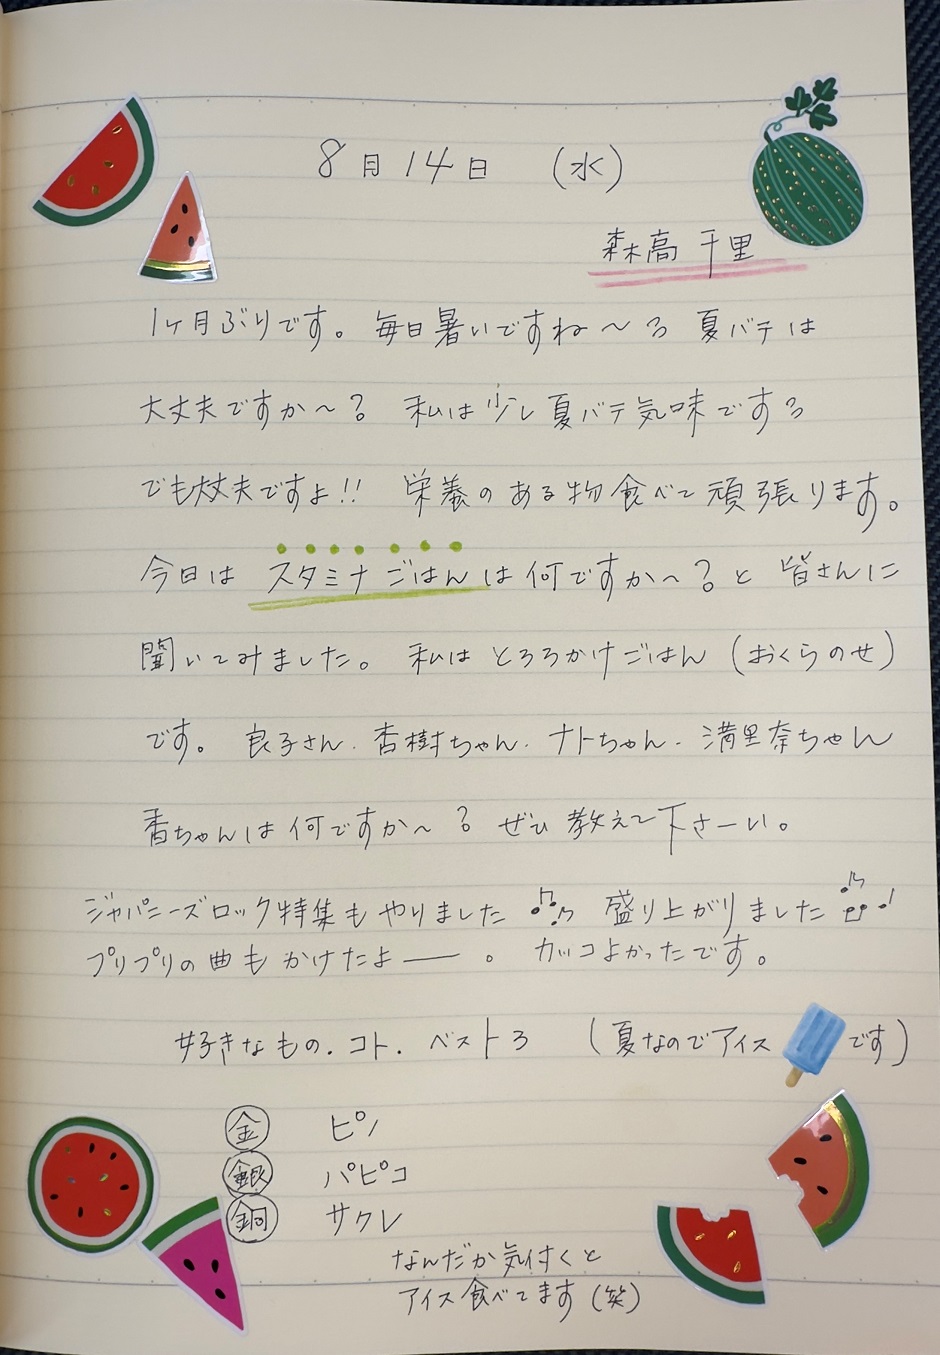 8月14日 (水)
森高千里
1ヶ月ぶりです。毎日暑いですね〜る 夏バテは
大丈夫ですか〜? 私は少し夏バテ気味でする
でも大丈夫ですよ!! 栄養のある物食べて頑張ります。
今日は スタミナごはんは何ですか〜?と 皆さんに
聞いてみました。私は とろろかけごはん (おくらのせ)
です。良子さん.杏樹ちゃん.ナトちゃん.満里奈ちゃん
香ちゃんは何ですか〜? ぜひ教えて下さーい。
ジャパニーズロック特集もやりました♫♪ 盛り上がりました♪♫♩
プリプリの曲もかけたよ——。カッコよかったです。
好きなもの.コト.ベスト3 (夏なのでアイスです)
金 ピノ
銀 パピコ
銅 サクレ
なんだか気付くと
アイス食べてます(笑)